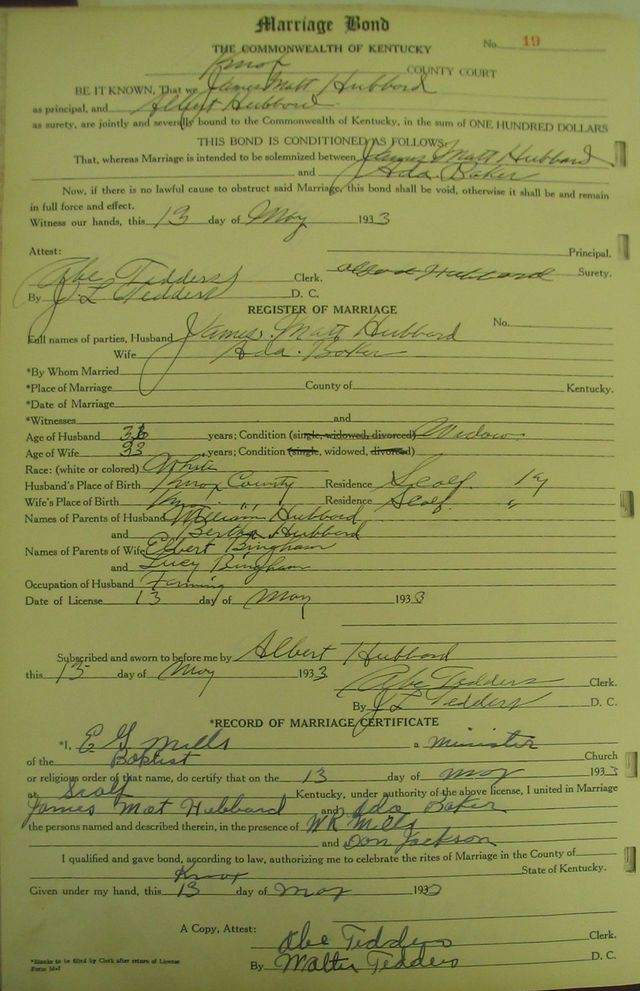 Marriage Bond
THE COMMONWEALTH OF KENTUCKY
No. 19
Knox COUNTY COURT
BE IT KNOWN, That we James Matt Hubbard
as principal, and Albert Hubbard
as surety, are jointly and severally bound to the Commonwealth of Kentucky, in the sum of ONE HUNDRED DOLLARS
THIS BOND IS CONDITIONED AS FOLLOWS:
That, whereas Marriage is intended to be solemnized between James Matt Hubbard
and Ada Baker
Now, if there is no lawful cause to obstruct said Marriage, this bond shall be void, otherwise it shall be and remain
in full force and effect.
Witness our hands, this 13 day of May 1933
Attest: Principal.
Abe Tedders Clerk. Hubbard Surety.
By J L Tedders D. C.
REGISTER OF MARRIAGE
No.
Full names of parties, Husband James Matt Hubbard
Wife Ada Baker
*By Whom Married
*Place of Marriage County of Kentucky.
*Date of Marriage
*Witnesses and
Age of Husband years; Condition (single, widowed, divorced) Widow
Age of Wife years; Condition (single, widowed, divorced)
Race: (white or colored) White
Husband's Place of Birth Knox County Residence Scalf Ky
Wife's Place of Birth Knox " Residence Scalf "
Names of Parents of Husband William Hubbard
and Bertha Hubbard
Names of Parents of Wife Elbert Bingham
and Lucy Bingham
Occupation of Husband Farming
Date of License 13 day of May 1933
Subscribed and sworn to before me by Albert Hubbard
this 13 day of May 1933
Abe Tedders Clerk.
By J L Tedders D. C.
*RECORD OF MARRIAGE CERTIFICATE
*I, E G Mills a minister
of the Baptist Church
or religious order of that name, do certify that on the 13 day of May 1933
at Scalf Kentucky, under authority of the above license, I united in Marriage
James Mat Hubbard and Ada Baker
the persons named and described therein, in the presence of W R Mills
and Don Jackson
I qualified and gave bond, according to law, authorizing me to celebrate the rites of Marriage in the County of
Knox State of Kentucky.
Given under my hand, this 13 day of May 193
A Copy, Attest: Abe Tedders Clerk.
By Walter Tedders D. C.
*Blanks to be filled by Clerk after return of License